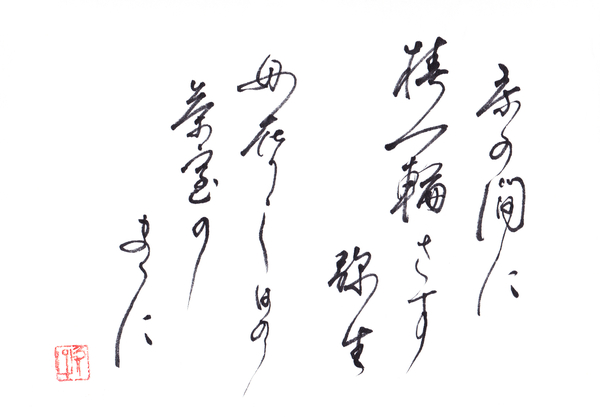 床の間に
椿一輪さす
弥生
母在りし日の
茶室の
まゝに